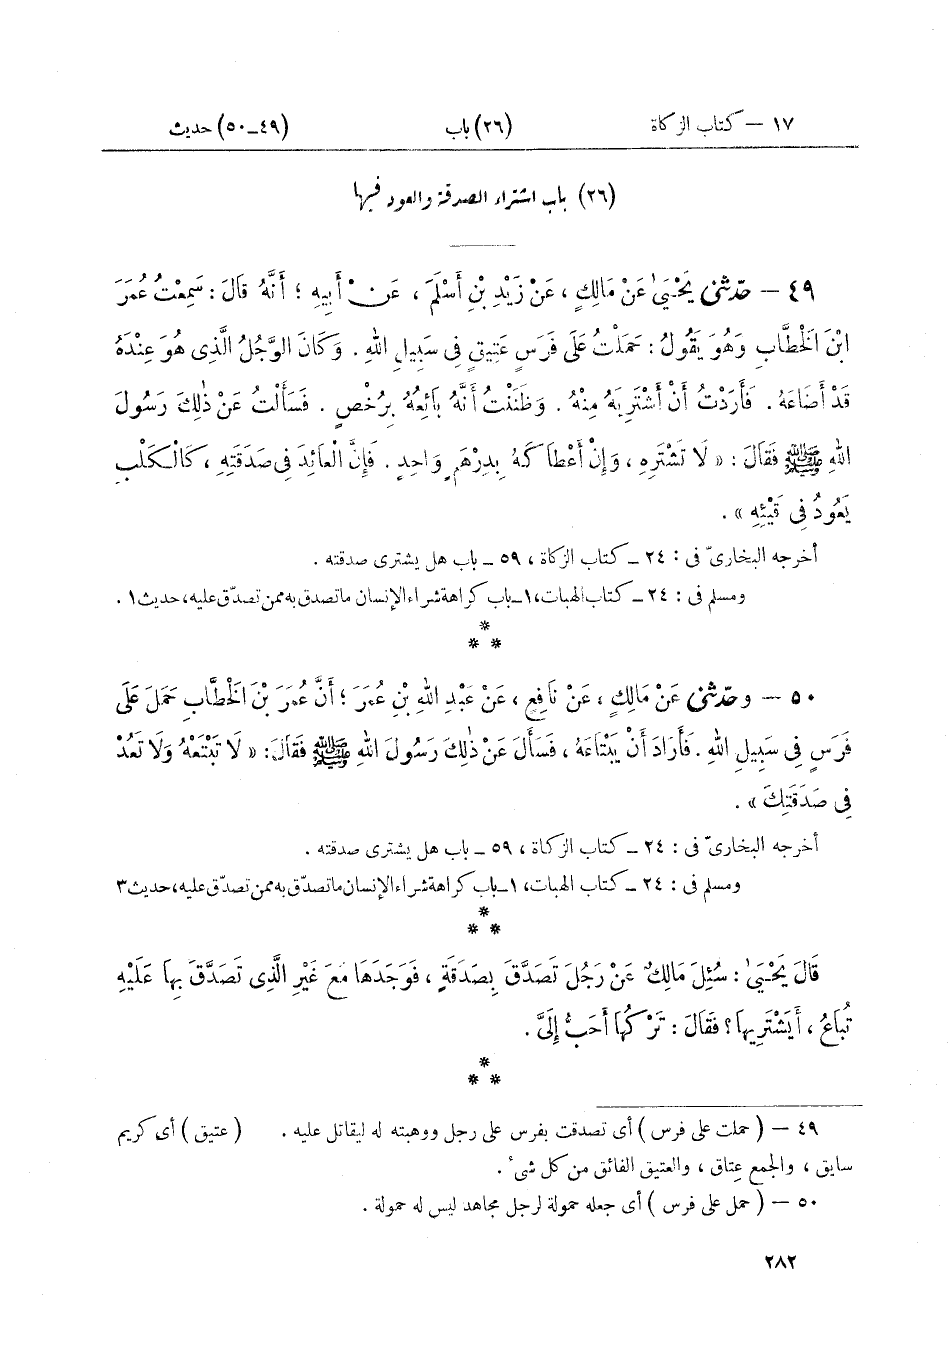 ١٧ – كتاب الزكاة (٢٦) باب (٤٩–٥٠) حديث
(٢٦) باب اشتراء الصدقة والعود فيها
٤٩ – حدّثنى يَحْيَىٰ عَنْ مَالِكٍ ، عَنْ زَيْدِ بْنِ أَسْلَمَ ، عَنْ أَبِيهِ ؛ أَنَّهُ قَالَ : سَمِعْتُ عُمَرَ
ابْنَ الْخَطَّابِ وَهُوَ يَقُولُ : حَمَلْتُ عَلَى فَرَسٍ عَتِيقٍ فِى سَبِيلِ اللهِ . وَكَانَ الرَّجُلُ الَّذِى هُوَ عِنْدَهُ
قَدْ أَضَاعَهُ . فَأَرَدْتُ أَنْ أَشْتَرِيَهُ مِنْهُ . وَظَنَنْتُ أَنَّهُ بَائِعُهُ بِرُخْصٍ . فَسَأَلْتُ عَنْ ذٰلِكَ رَسُولَ
اللهِ ﷺ فَقَالَ : « لَا تَشْتَرِهِ ، وَإِنْ أَعْطَاكَهُ بِدِرْهَمٍ وَاحِدٍ . فَإِنَّ الْعَائِدَ فِى صَدَقَتِهِ ، كَالْكَلْبِ
يَعُودُ فِى قَيْئِهِ » .
أخرجه البخارىّ فى : ٢٤ – كتاب الزكاة ، ٥٩ – باب هل يشترى صدقته .
ومسلم فى : ٢٤ – كتاب الهبات، ١ – باب كراهة شراء الإنسان ما تصدق به ممن تصدّق عليه، حديث ١ .
*
* *
٥٠ – وحدّثنى عَنْ مَالِكٍ ، عَنْ نَافِعٍ ، عَنْ عَبْدِ اللهِ بْنِ عُمَرَ ؛ أَنَّ عُمَرَ بْنَ الْخَطَّابِ حَمَلَ عَلَى
فَرَسٍ فِى سَبِيلِ اللهِ . فَأَرَادَ أَنْ يَبْتَاعَهُ ، فَسَأَلَ عَنْ ذٰلِكَ رَسُولَ اللهِ ﷺ فَقَالَ : « لَا تَبْتَعْهُ وَلَا تَعُدْ
فِى صَدَقَتِكَ » .
أخرجه البخارىّ فى : ٢٤ – كتاب الزكاة ، ٥٩ – باب هل يشترى صدقته .
ومسلم فى : ٢٤ – كتاب الهبات، ١ – باب كراهة شراء الإنسان ما تصدّق به ممن تصدّق عليه، حديث ٣
*
* *
قَالَ يَحْيَىٰ : سُئِلَ مَالِكٌ عَنْ رَجُلَ تَصَدَّقَ بِصَدَقَةٍ ، فَوَجَدَهَا مَعَ غَيْرِ الَّذِى تَصَدَّقَ بِهَا عَلَيْهِ
تُبَاعُ ، أَيَشْتَرِيهَا ؟ فَقَالَ : تَرْكُهَا أَحَبُّ إِلَىَّ .
*
* *
٤٩ – ( حملت على فرس ) أى تصدقت بفرس على رجل ووهبته له ليقاتل عليه . ( عتيق ) أى كريم
سابق ، والجمع عِتاق ، والعتيق الفائق من كل شىء .
٥٠ – ( حمل على فرس ) أى جعله حمولة لرجل مجاهد ليس له حمولة .
٢٨٢